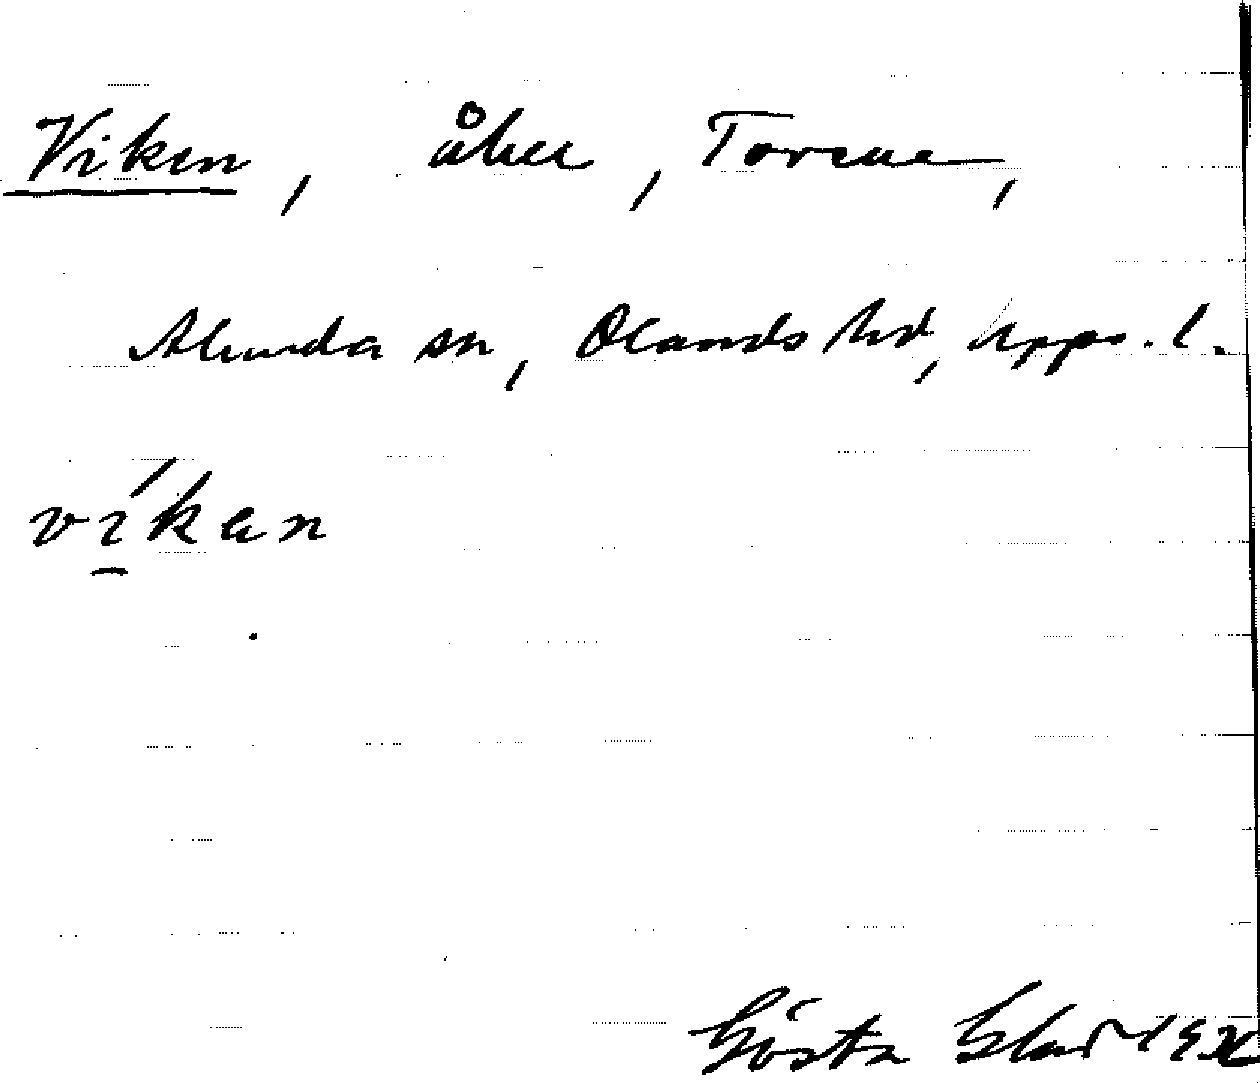 Viken, åker, Torrene,
Alunda sn, Olands hd, Upps. l.
víkan
Gösta